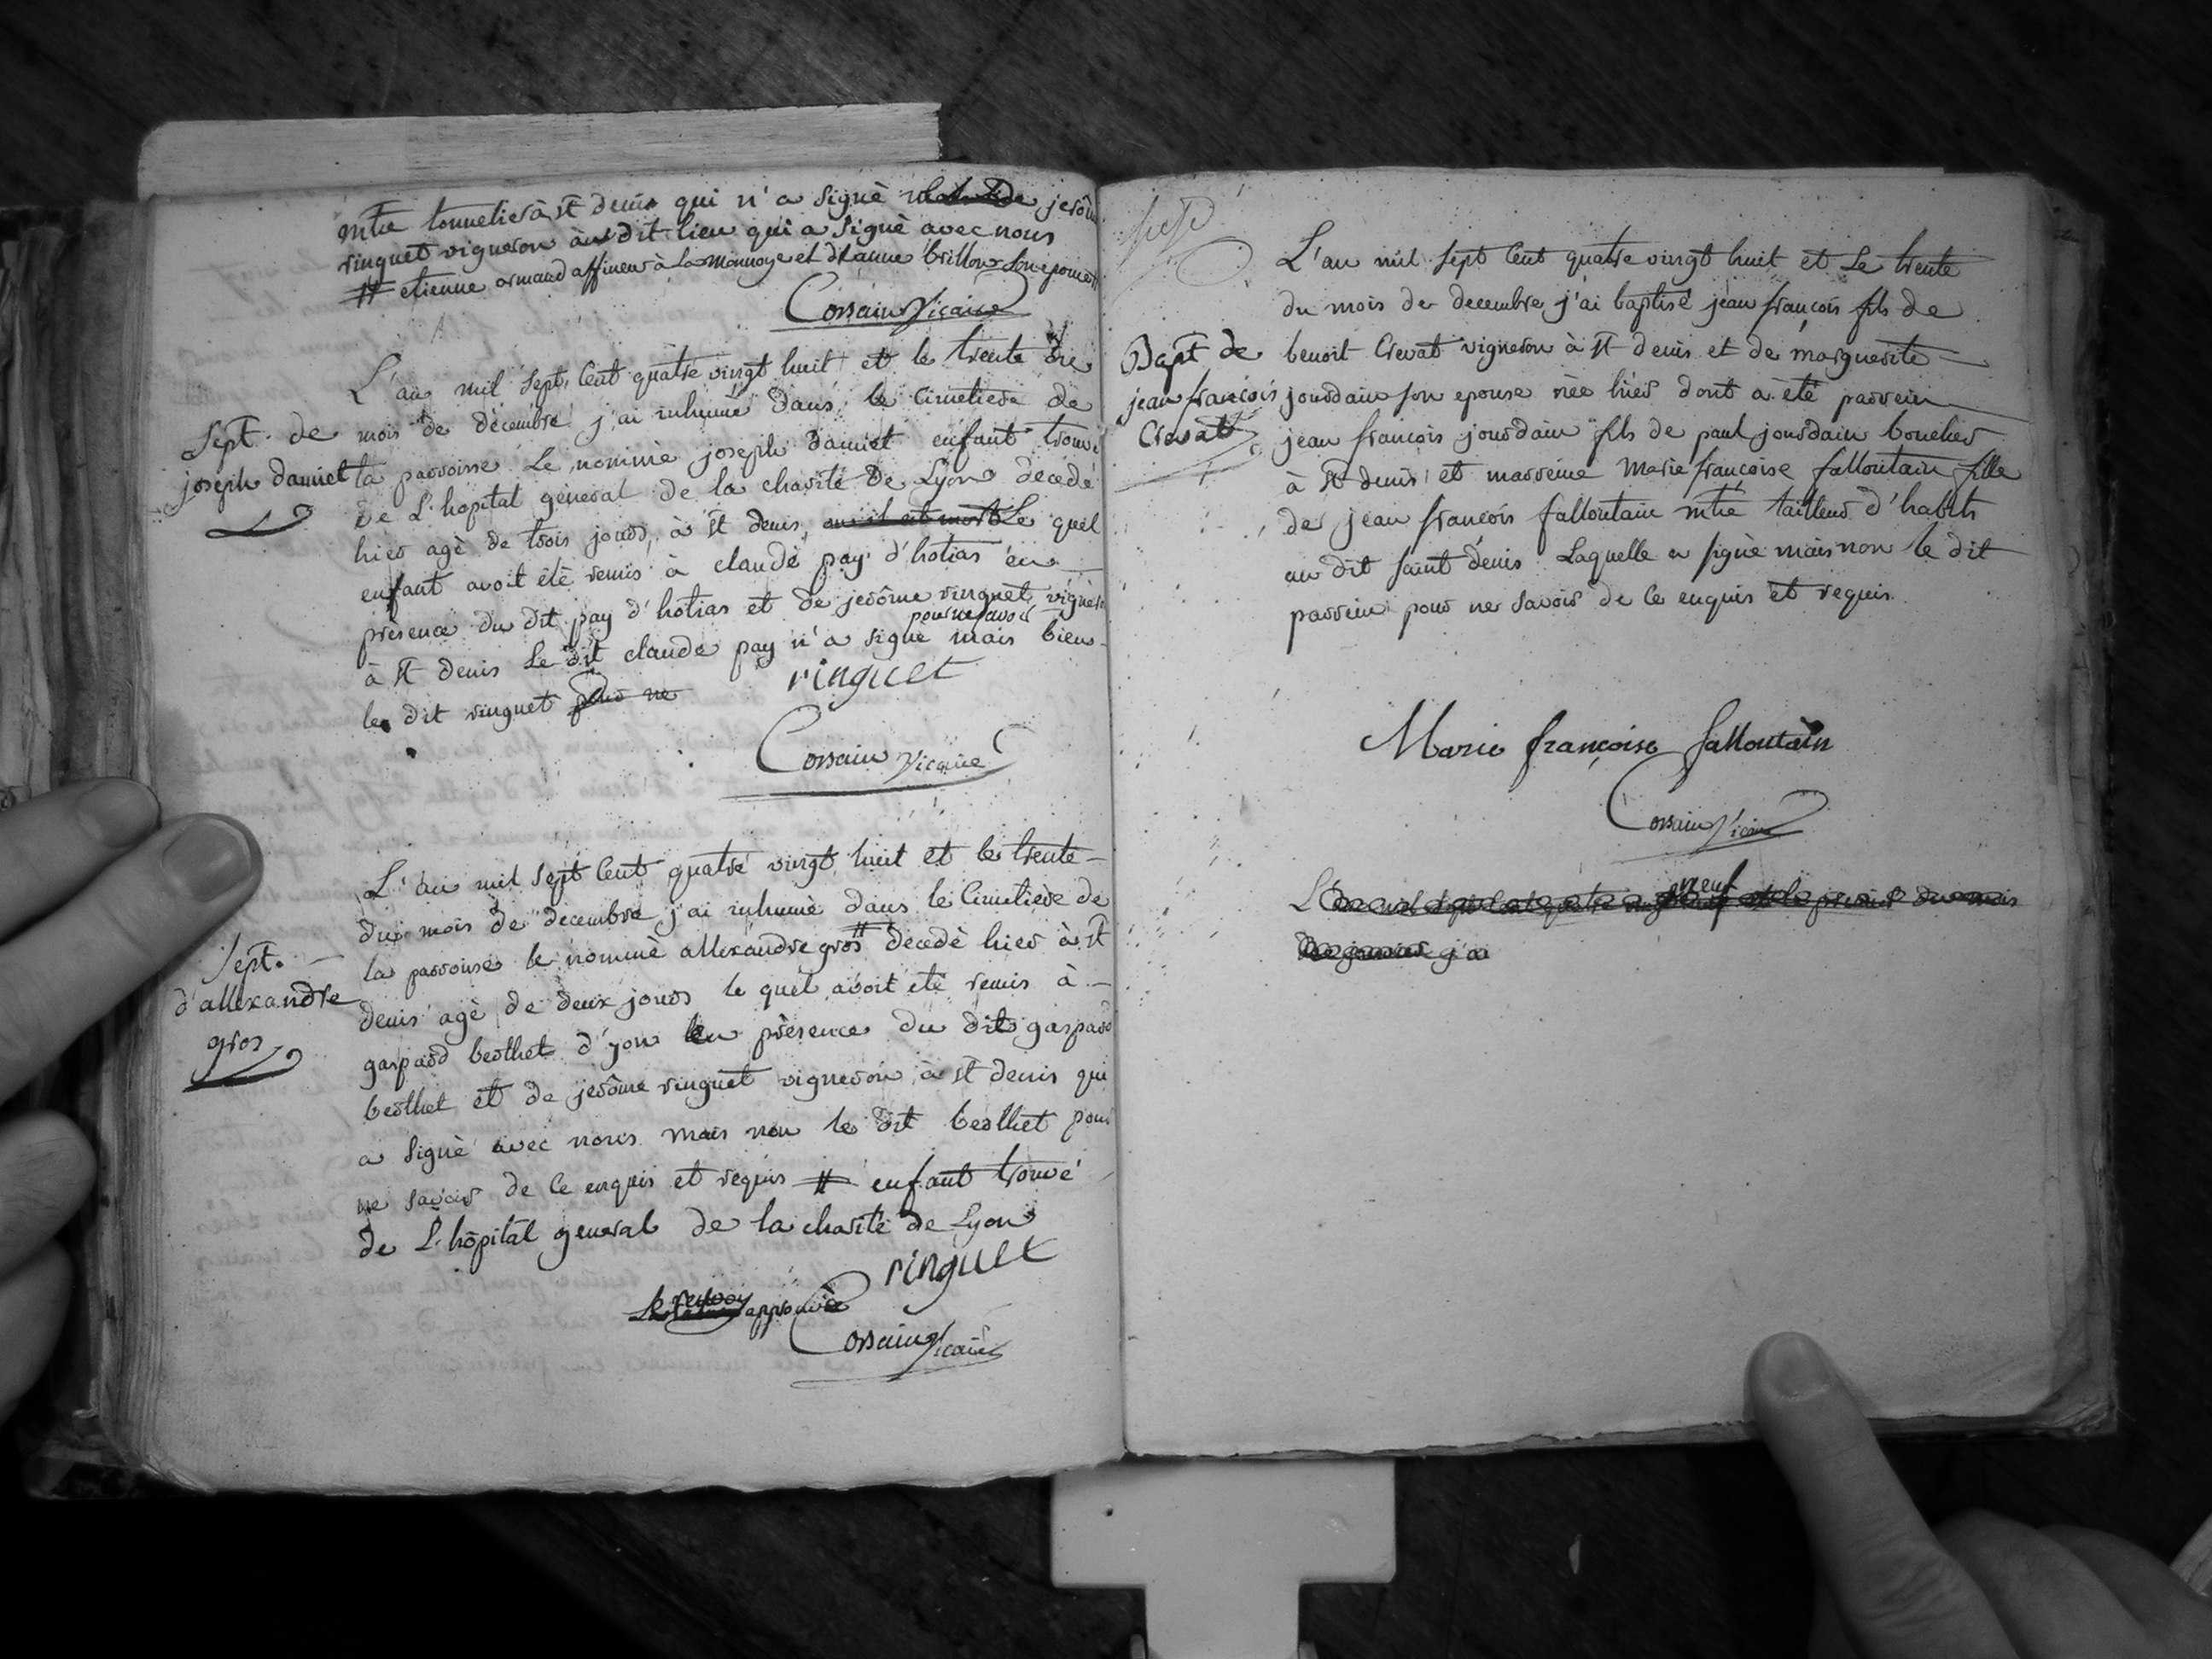 mtre tonnelier à st denis qui n'a signè jerôm
ringuet vigneron au dit lieu qui a signè avec nous
# etienne armand affineur à la monnoye et d'anne brillon son epouse #
Corsain Vicaire
L'an mil sept Cent quatre vingt huit et le trente du
mois de décembre j'ai inhumé dans le Cimetiere de
Sept. de
joseph daniel
la parroisse Le nommè joseph daniel enfant trouvé
de L'hopital gèneral de la charité De Lyon decedé
hier agè de trois jours, à st denis, ou il est mort Le quel
enfant avoit été remis à claude pay d'hotias en
présence du dit pay d'hotias et de jerôme ringuet vigner
à st denis Le dit claude pay n'a signe pour ne savoir mais bien
le dit ringuet pour ne
ringuet
Corsain Vicaire
L'an mil sept Cent quatre vingt huit et le trente
du mois de decembre j'ai inhumè dans le Cimetiere de
Sept.
d'allexandre
gros
la parroisse le nommè allexandre gros # decedè hier à st
denis agè de deux jours le quel avoit été remis à
gaspard berthet d'yon en présence du dit gaspard
berthet et de jerôme ringuet vigneron à st denis qui
a signè avec nous mais non le dit berthet pour
ne savoir de Ce enquis et requis # enfant trouvé
de L'hôpital general de la charité de Lyon
ringuet
le renvoy approuvè
Corsain Vicaire
L'an mil sept Cent quatre vingt huit et Le trente
du mois de decembre j'ai baptisé jean françois fils de
Bapt de
jean françois
Crevat
benoit Crevat vigneron à st denis et de marguerite
jourdain son epouse née hier dont a été parrein
jean francois jourdain fils de paul jourdain boucher
à st denis et marreine Marie françoise falloutain fille
de jean francois falloutain mtre tailleur d'habits
au dit saint denis Laquelle a signè mais non le dit
parrein pour ne savoir de Ce enquis et requis
Marie françoise falloutain
Corsain Vicaire
L'an mil sept Cent quatre vingt neuf et le premier du mois
de janvier j'ai